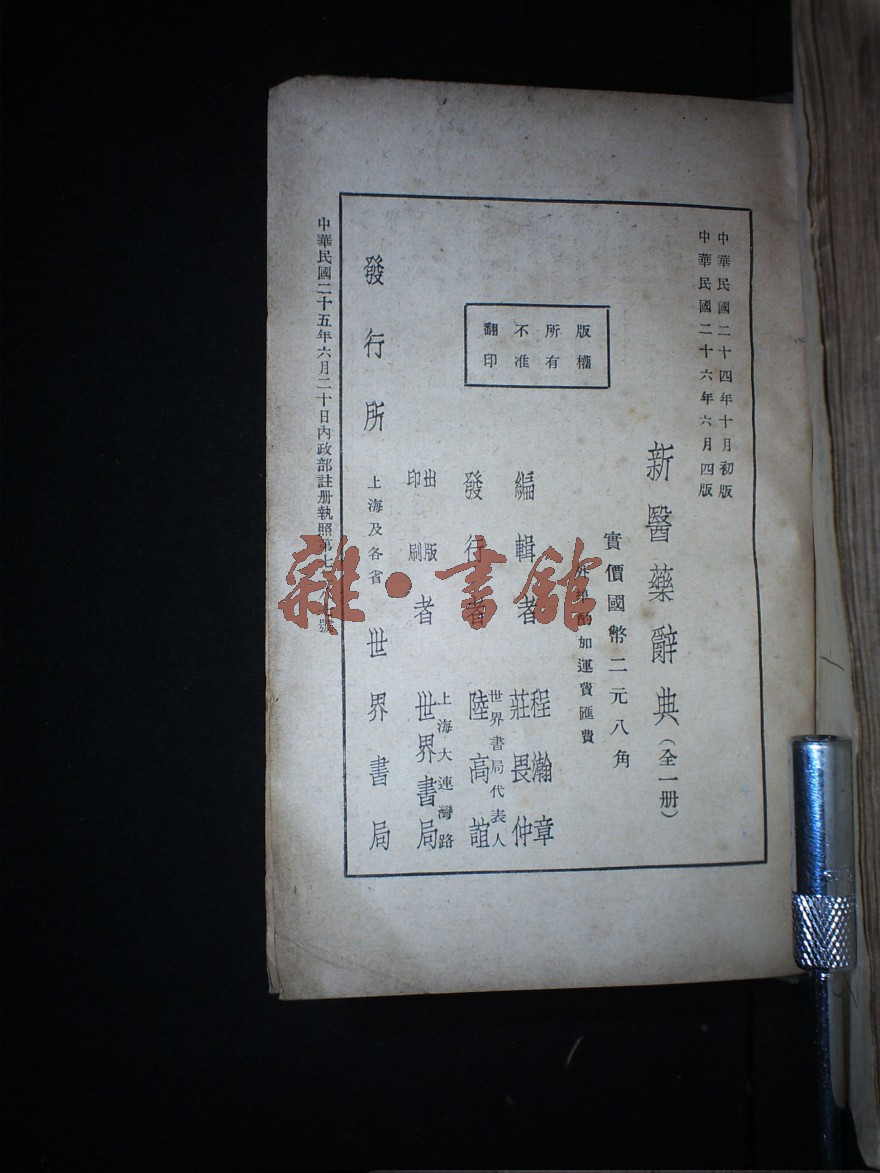 中華民國二十四年十月初版
中華民國二十六年六月四版
新醫藥辭典（全一册）
實價國幣二元八角
加運費匯費
版權
所有
不准
翻印
編輯者
程瀚章
莊畏仲
發行者
世界書局代表人
陸高誼
出版
印刷
者
上海大連灣路
世界書局
發行所
上海及各省
世界書局
中華民國二十五年六月二十日內政部註册執照第七
號
雜·書館